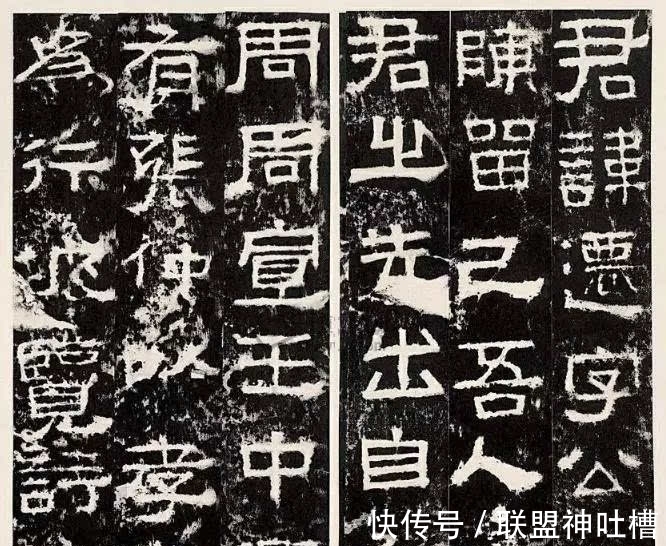 君諱遷字公
陳留己吾人
君之先出自
周周宣王中
有張仲以孝
為行披覽詩
快传号 / 联盟神吐槽